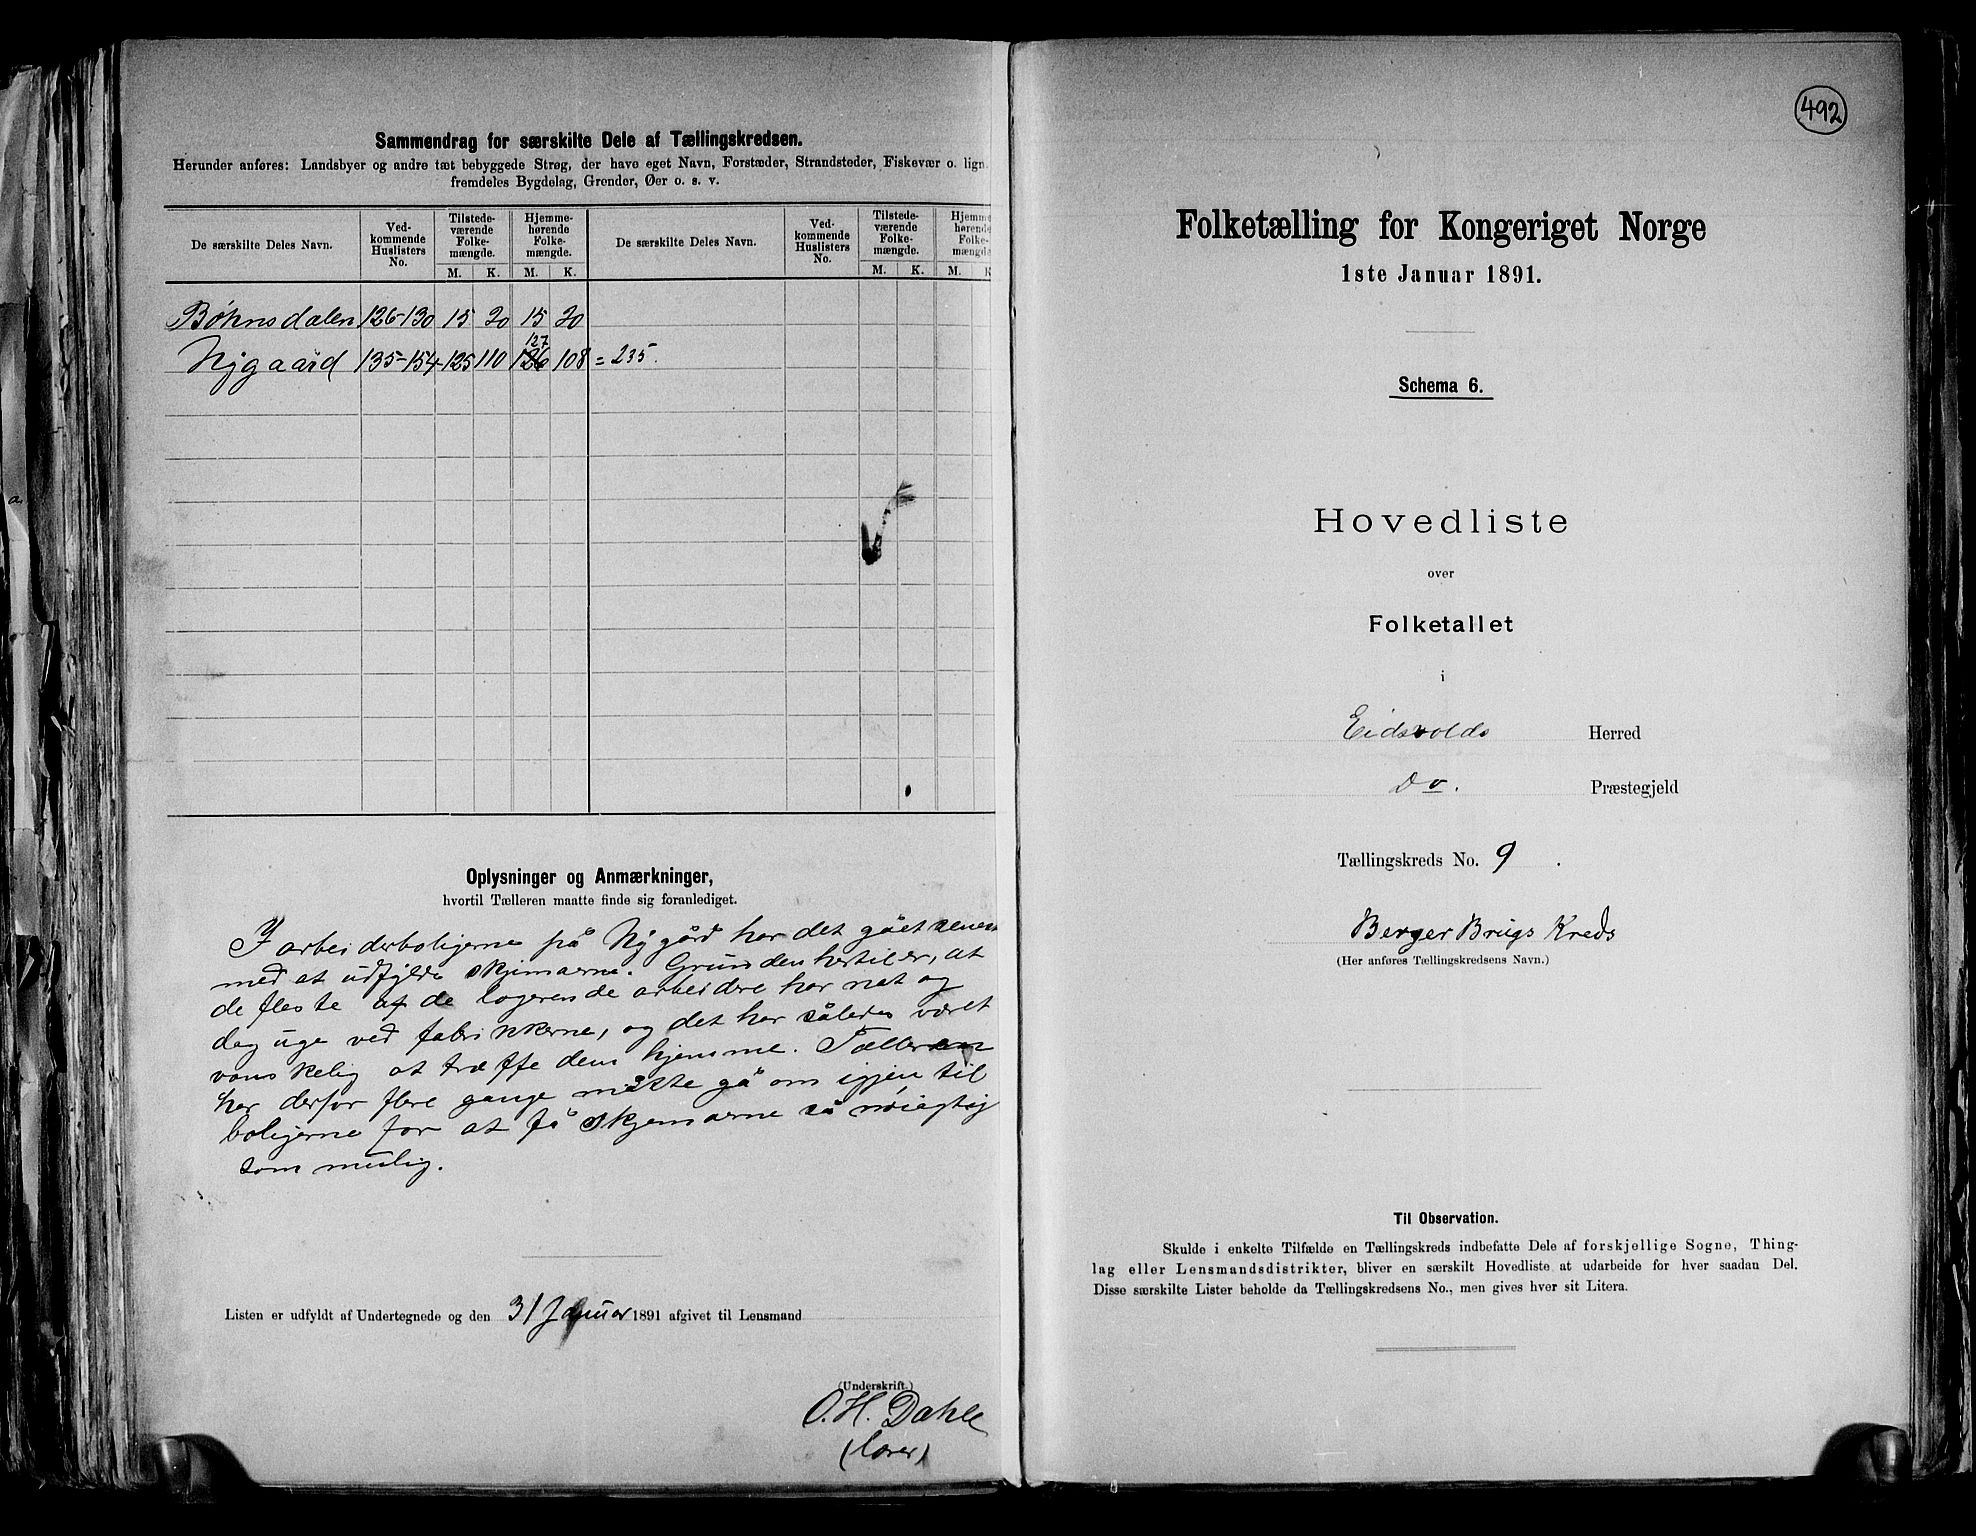 Sammendrag for særskilte Dele af Tællingskredsen.
Herunder anføres: Landsbyer og andre tæt bebyggede Strøg, der have eget Navn, Forstæder, Strandsteder, Fiskevær o. lign.
fremdeles Bygdelag, Grender, Øer o. s. v.
De særskilte Deles Navn. Ved-kommende Huslisters No. Tilstede-værende Folke-mængde. M. K. Hjemme-hørende Folke-mængde. M. K. De særskilte Deles Navn. Ved-kommende Huslisters No. Tilstede-værende Folke-mængde. M. K. Hjemme-hørende Folke-mængde M. K
Bøhnsdalen 126-130 15 20 15 20
127
Nygaard 135-154 125 110 126 108 = 235.
Oplysninger og Anmærkninger,
hvortil Tælleren maatte finde sig foranlediget.
I arbeiderboligerne på Nygård har det gået senest
med at udfylde skjemaerne. Grunden hertil er, at
de fleste af de logerende arbeidere har nat og
dag uge ved fabrikkerne, og det har således været
vanskelig at træffe dem hjemme. Tælleren
har derfor flere gange måtte gå om igjen til
boligerne for at få skjemaerne så nøiagtig
som mulig.
Listen er udfyldt af Undertegnede og den 31 Januar 1891 afgivet til Lensmand
(Underskrift.)
O. H. Dahle
(lærer)
492
Folketælling for Kongeriget Norge
1ste Januar 1891.
Schema 6.
Hovedliste
over
Folketallet
i
Eidsvolds Herred
Do. Præstegjeld
Tællingskreds No. 9.
Berger Brugs Kreds
(Her anføres Tællingskredsens Navn.)
Til Observation.
Skulde i enkelte Tilfælde en Tællingskreds indbefatte Dele af forskjellige Sogne, Thing-
lag eller Lensmandsdistrikter, bliver en særskilt Hovedliste at udarbeide for hver saadan Del.
Disse særskilte Lister beholde da Tællingskredsens No., men gives hver sit Litera.